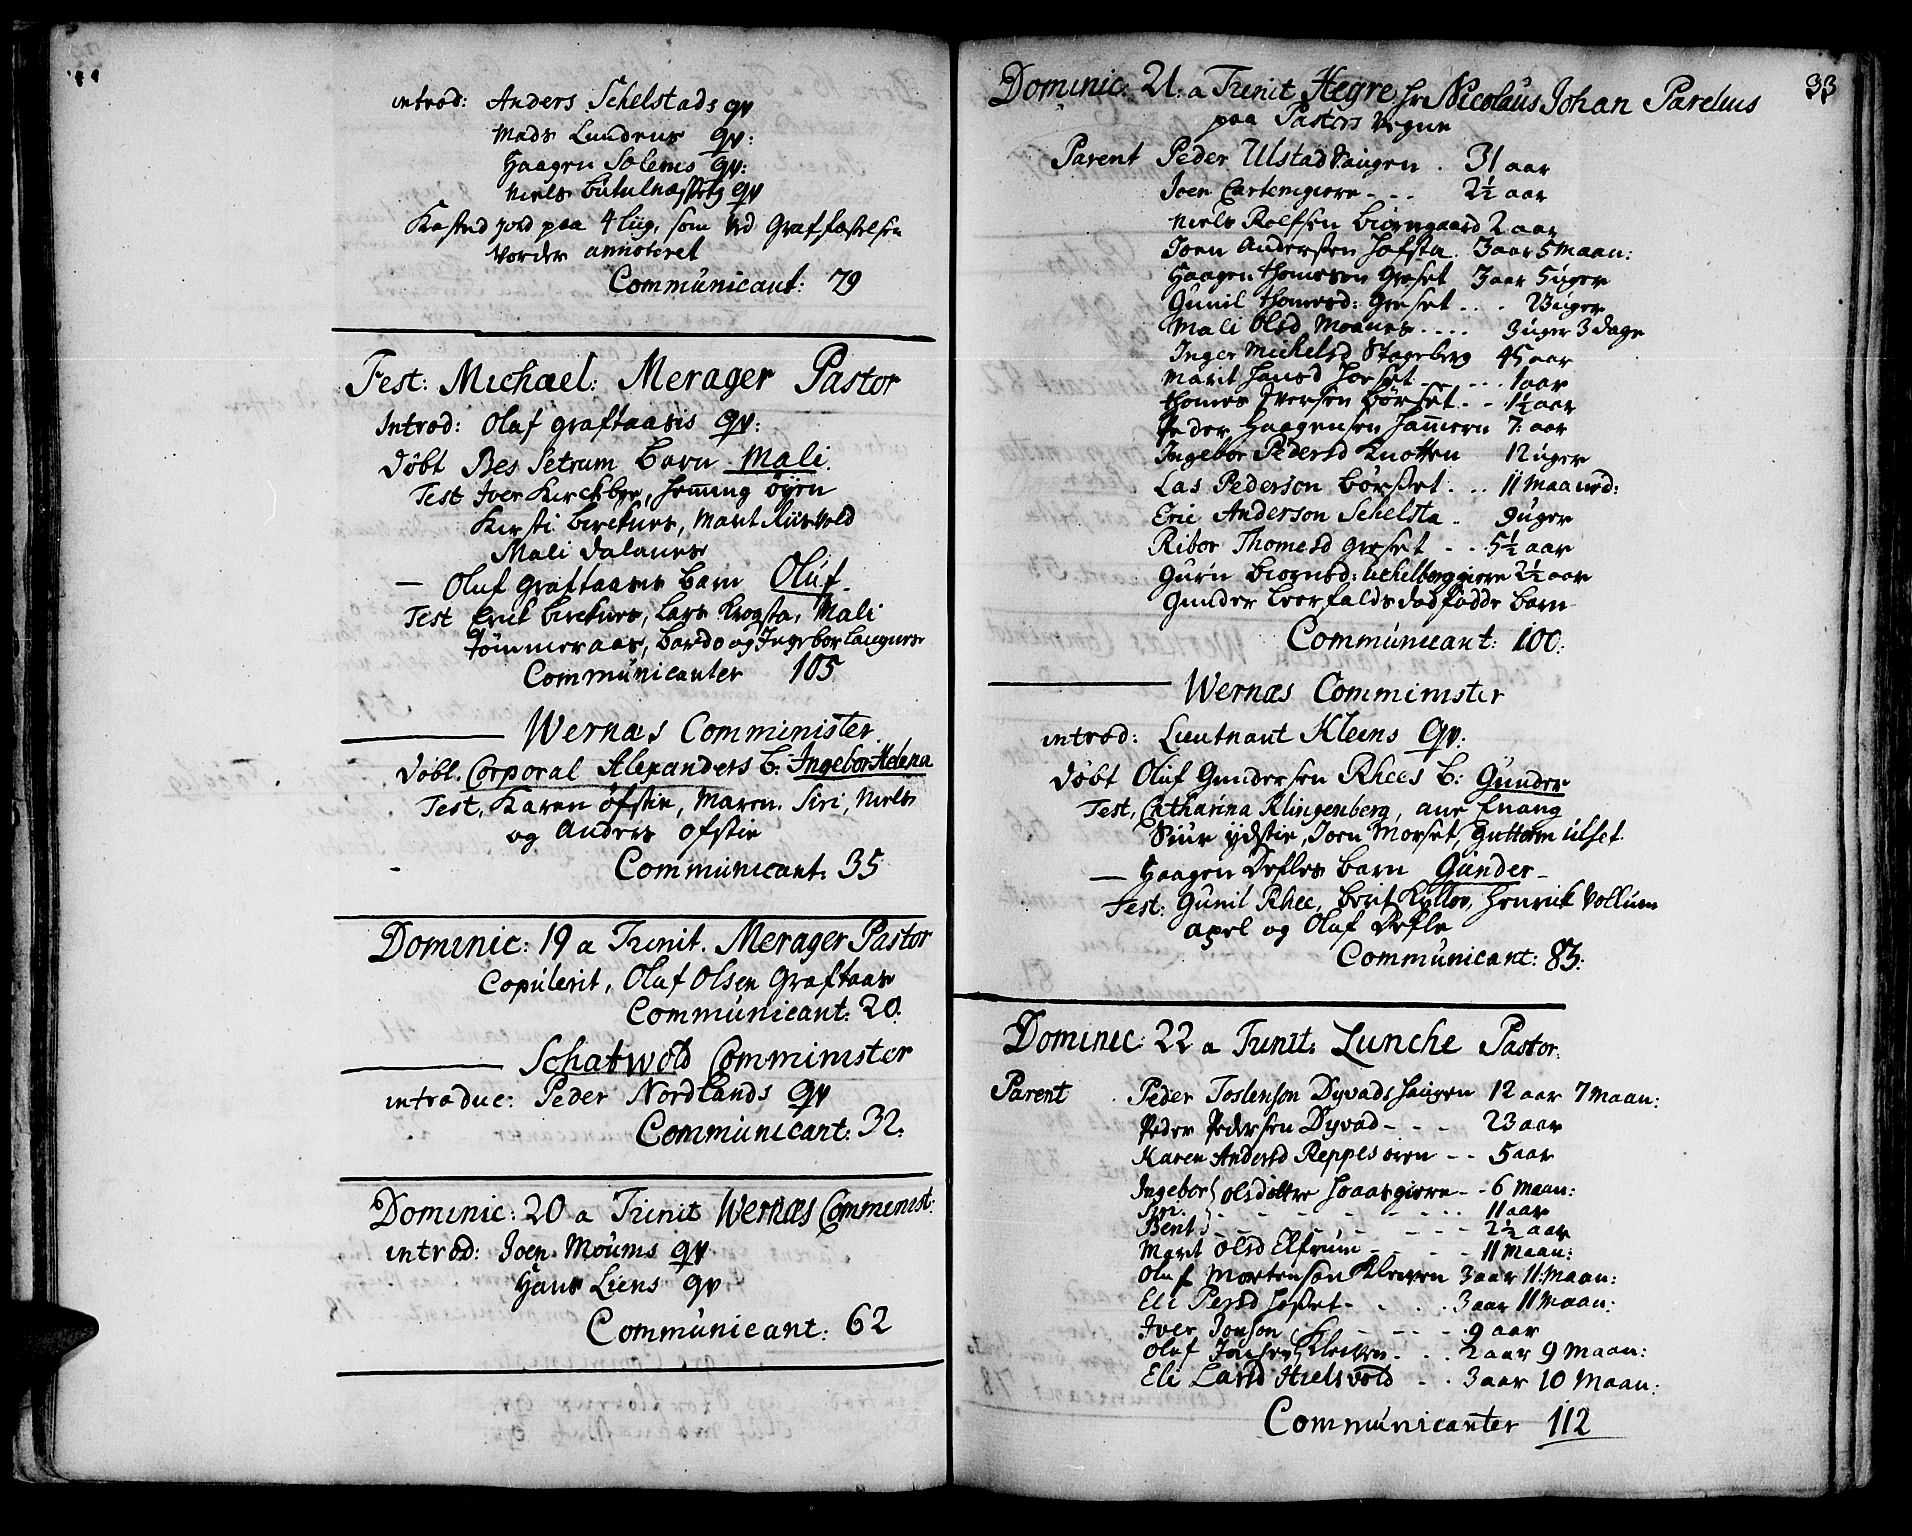 introd: Anders Schelstads qv
Mads Lundens qv:
Haagen Solems qv:
Niels Butulnæssets qv
Kasted jord paa 4 Liig, som ved Graffæstelsen
vorder annoteret
Communicant: 79
Fest: Michael: Merager Pastor
Introd: Olaf graftaasis qv:
Døbt Bes Setrum Barn Mali.
Test Iver Kirckbye, Hemming øÿen
Kirsti birckners, Marit
Mali Dalaner
— Oluf graftaaser Barn Oluf
Test Erick birckner, Lars Krogsta, Mali
Tømmeraas, Bardo og Ingebor Laugner
Communicanter 105
Wernæs Comminister
Døbt. Corporal Alexanders B: Ingebor Helena
Test, Karen øfstie, Maren, Siri, Niels
og Anders ofstie
Communicant: 35
Dominic: 19 a Trinit. Merager Pastor
Copulerit, Oluf Olsen Graftaas
Communicant: 20.
Schatwold Comminister
introduc: Peder Nordlands qv
Communicant: 32.
Dominic: 20 a Trinit Wernæs Comminist:
introd: Joen Moums qv
Hans Liens qv
Communicant: 62
33
Dominic: 21. a Trinit Hegre hr Nicolaus Johan Parelius
paa Pastors Vegne
Parent Peder Ulstad haugen . 31 aar
Joen Cartemgierre - - - 2½ aar
Niels Rolfsen Biorngaard 2 aar
Joen Andersen Hofsta. 3 aar 5 maan:
Haagen Thomeson Greset 3 aar 5 uger
Gunil Thomesd: Greset . . . 23 uger
Mali Olsd Moanes . . . . 3 uger 3 dage
Inger Michelsd Stageberg 45 aar
Marit Hansd Horset - - . . . 1 aar
Thomes Iversen Børset . - - 1½ aar
Peder Haagensen Hammern 7: aar
Ingebor Pedersd Knotten 12 uger
Las Pederson Børset . . . 11 maaned:
Eric Anderson Schelsta . 9 uger
Ribor Thomesd greset - - . 5½ aar
Guru Biornsd: Uchelberggierre 2½ aar
Gunder Leerfalds dødfødde Barn
Communicant: 100.
Wernæs Comminister
introd: Lieutnant Kleens qv:
Døbt Oluf Gundersen Rhees B: Gunder
Test, Catharina Klingenberg, ane Enang
Siur ÿdstie, Joen Morset, Guttorm Ulset.
— Haagen Defles Barn Gunder
Test: Gunil Rhee, Berit Kyllor, Henrik Vollum
apel og Oluf Defle
Communicant: 83.
Dominic: 22 a Trinit. Lunche Pastor.
Parent . Peder Toslenson Dyvads haugen 12 aar 7 maan:
Peder Pedersen Dyvad - - - - 23 aar
Karen Andersd Reppes - - 5 aar
Ingebor olsdøttre Haasgierre - - 6 maan:
Siri. - - - - - - . . . 11 aar
Berit - - - - - - - 2½ aar
Marit Olsd Elfrum - - - - 11 maan:
Oluf Mortenson Kleiven 3 aar 11: maan:
Eli Persd Hoset - . . . 3 aar 11 maan:
Iver Jonson - - - - . 9 aar
Oluf Jonsen Kleiven - . . 2 aar 9 maan:
Eli Larsd Hielsvold - . . 3 aar 10 maan:
Communicanter 112